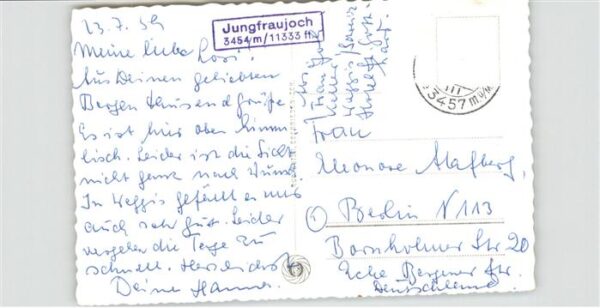 23.7.59
Jungfraujoch
3454 m/11333 ft.
Meine liebe
Aus Deinen geliebten
Bergen tausend Grüße
Es ist hier oben himm
lisch. Leider ist die Sicht
nicht ganz nach Wunsch
In Weggis gefällt es uns
auch sehr gut. Leider
vergehen die Tage zu
schnell. Herzlichst
Deine Hanna
Abs.
Frau
Weggis/
3457 m ü/M
Frau
Eleonore
Berlin N 113
Bornholmer Str 20
Ecke Bergener Str.
Deutschland